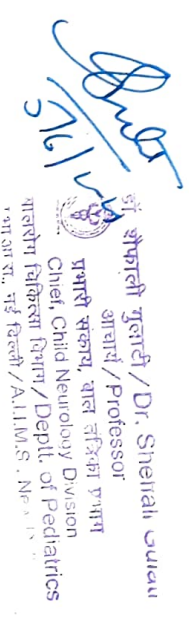 डॉ शेफाली गुलाटी / Dr. Shefali
आचार्य / Professor
प्रभारी संकाय, बाल तंत्रिका प्रभाग
Chief, Child Neurology Division
बालरोग चिकित्सा विभाग / Deptt. of Pediatrics
नई दिल्ली / A.I.I.M.S.